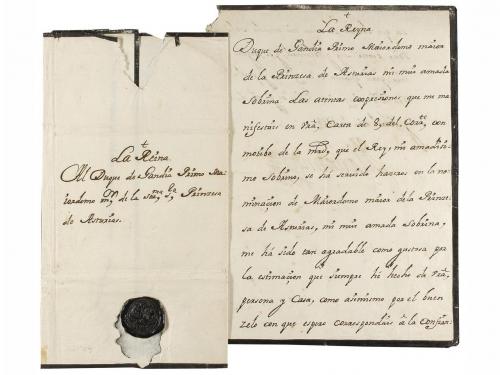 La Reina
Al Duque de Gandia Primo Ma
iordomo mr. de la sma. Sa. Prinzesa
de Asturias.
La Reyna
Duque de Gandia Primo Maiordomo maior
de la Prinzesa de Asturias mi mui amada
Sobrina Las atentas expresiones que me ma
nifestais en vra. Carta de 8. del Corrte. con
motibo de la mrd. que el Rey, mi amadisi
mo Sobrino, se há servido hazeros en la no
minazion de Maiordomo maior de la Prinze
sa de Asturias, mi mui amada Sobrina,
me ha sido tan agradable como gustosa por
la estimazion que siempre hé hecho de vra.
persona y Casa, como asimismo por el buen
zelo con que espero correspondais á la confian